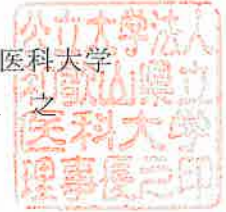 医科大学
之
公立大学法人
和歌山県立
医科大学
理事長之印